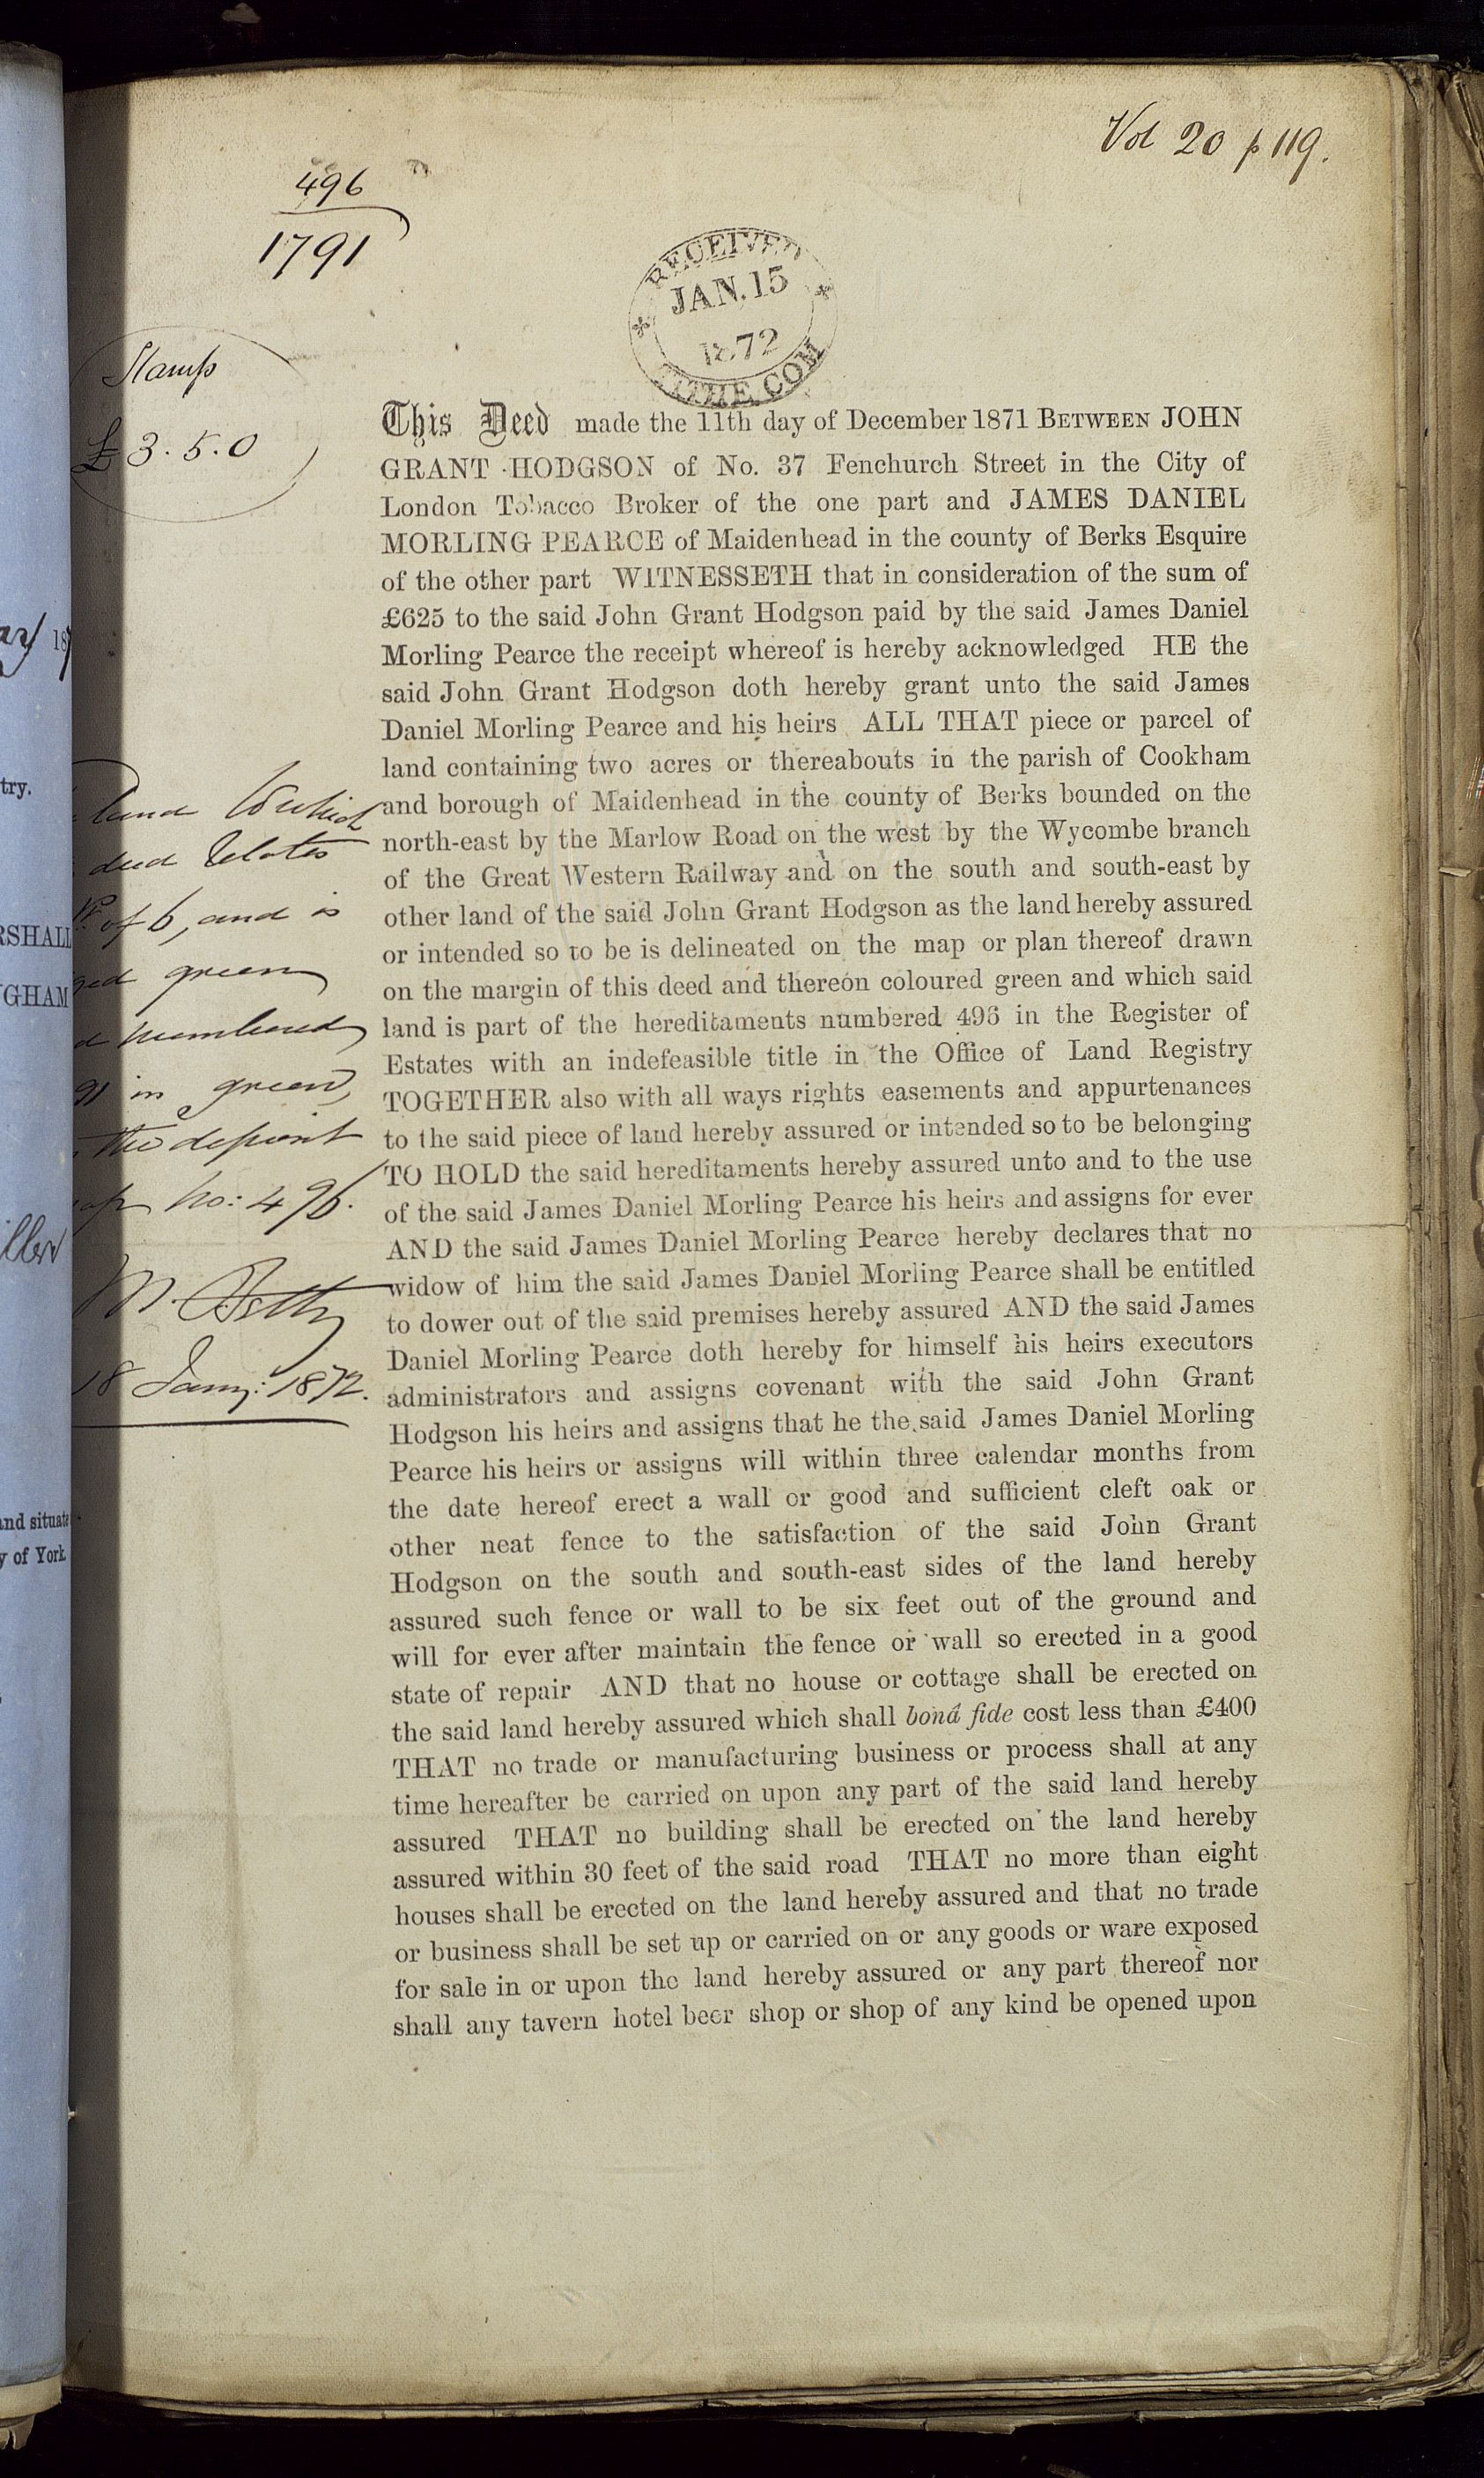 Vol 20 p 119.
496
1791
RECEIVED
JAN. 15
1872
TITHE COM
Stamp
£3.5.0
This Deed made the 11th day of December 1871 BETWEEN JOHN
GRANT HODGSON of No. 37 Fenchurch Street in the City of
London Tobacco Broker of the one part and JAMES DANIEL
MORLING PEARCE of Maidenhead in the county of Berks Esquire
of the other part WITNESSETH that in consideration of the sum of
£625 to the said John Grant Hodgson paid by the said James Daniel
Morling Pearce the receipt whereof is hereby acknowledged HE the
said John Grant Hodgson doth hereby grant unto the said James
Daniel Morling Pearce and his heirs ALL THAT piece or parcel of
land containing two acres or thereabouts in the parish of Cookham
and borough of Maidenhead in the county of Berks bounded on the
north-east by the Marlow Road on the west by the Wycombe branch
of the Great Western Railway and on the south and south-east by
other land of the said John Grant Hodgson as the land hereby assured
or intended so to be is delineated on the map or plan thereof drawn
on the margin of this deed and thereon coloured green and which said
land is part of the hereditaments numbered 496 in the Register of
Estates with an indefeasible title in the Office of Land Registry
TOGETHER also with all ways rights easements and appurtenances
to the said piece of land hereby assured or intended so to be belonging
TO HOLD the said hereditaments hereby assured unto and to the use
of the said James Daniel Morling Pearce his heirs and assigns for ever
AND the said James Daniel Morling Pearce hereby declares that no
widow of him the said James Daniel Morling Pearce shall be entitled
to dower out of the said premises hereby assured AND the said James
Daniel Morling Pearce doth hereby for himself his heirs executors
administrators and assigns covenant with the said John Grant
Hodgson his heirs and assigns that he the said James Daniel Morling
Pearce his heirs or assigns will within three calendar months from
the date hereof erect a wall or good and sufficient cleft oak or
other neat fence to the satisfaction of the said John Grant
Hodgson on the south and south-east sides of the land hereby
assured such fence or wall to be six feet out of the ground and
will for ever after maintain the fence or wall so erected in a good
state of repair AND that no house or cottage shall be erected on
the said land hereby assured which shall bonâ fide cost less than £400
THAT no trade or manufacturing business or process shall at any
time hereafter be carried on upon any part of the said land hereby
assured THAT no building shall be erected on the land hereby
assured within 30 feet of the said road THAT no more than eight
houses shall be erected on the land hereby assured and that no trade
or business shall be set up or carried on or any goods or ware exposed
for sale in or upon the land hereby assured or any part thereof nor
shall any tavern hotel beer shop or shop of any kind be opened upon
land to which
deed relates
of 6, and is
green
numbered
91 in green
the deposit
No: 496.
18 Jany: 1872.
try.
RSHALL
GHAM
and situate
y of York